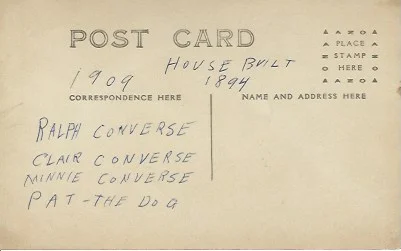 POST CARD
AZOA
PLACE
STAMP
HERE
AZOA
1909
HOUSE BUILT
1894
CORRESPONDENCE HERE
NAME AND ADDRESS HERE
RALPH CONVERSE
CLAIR CONVERSE
MINNIE CONVERSE
PAT - THE DOG